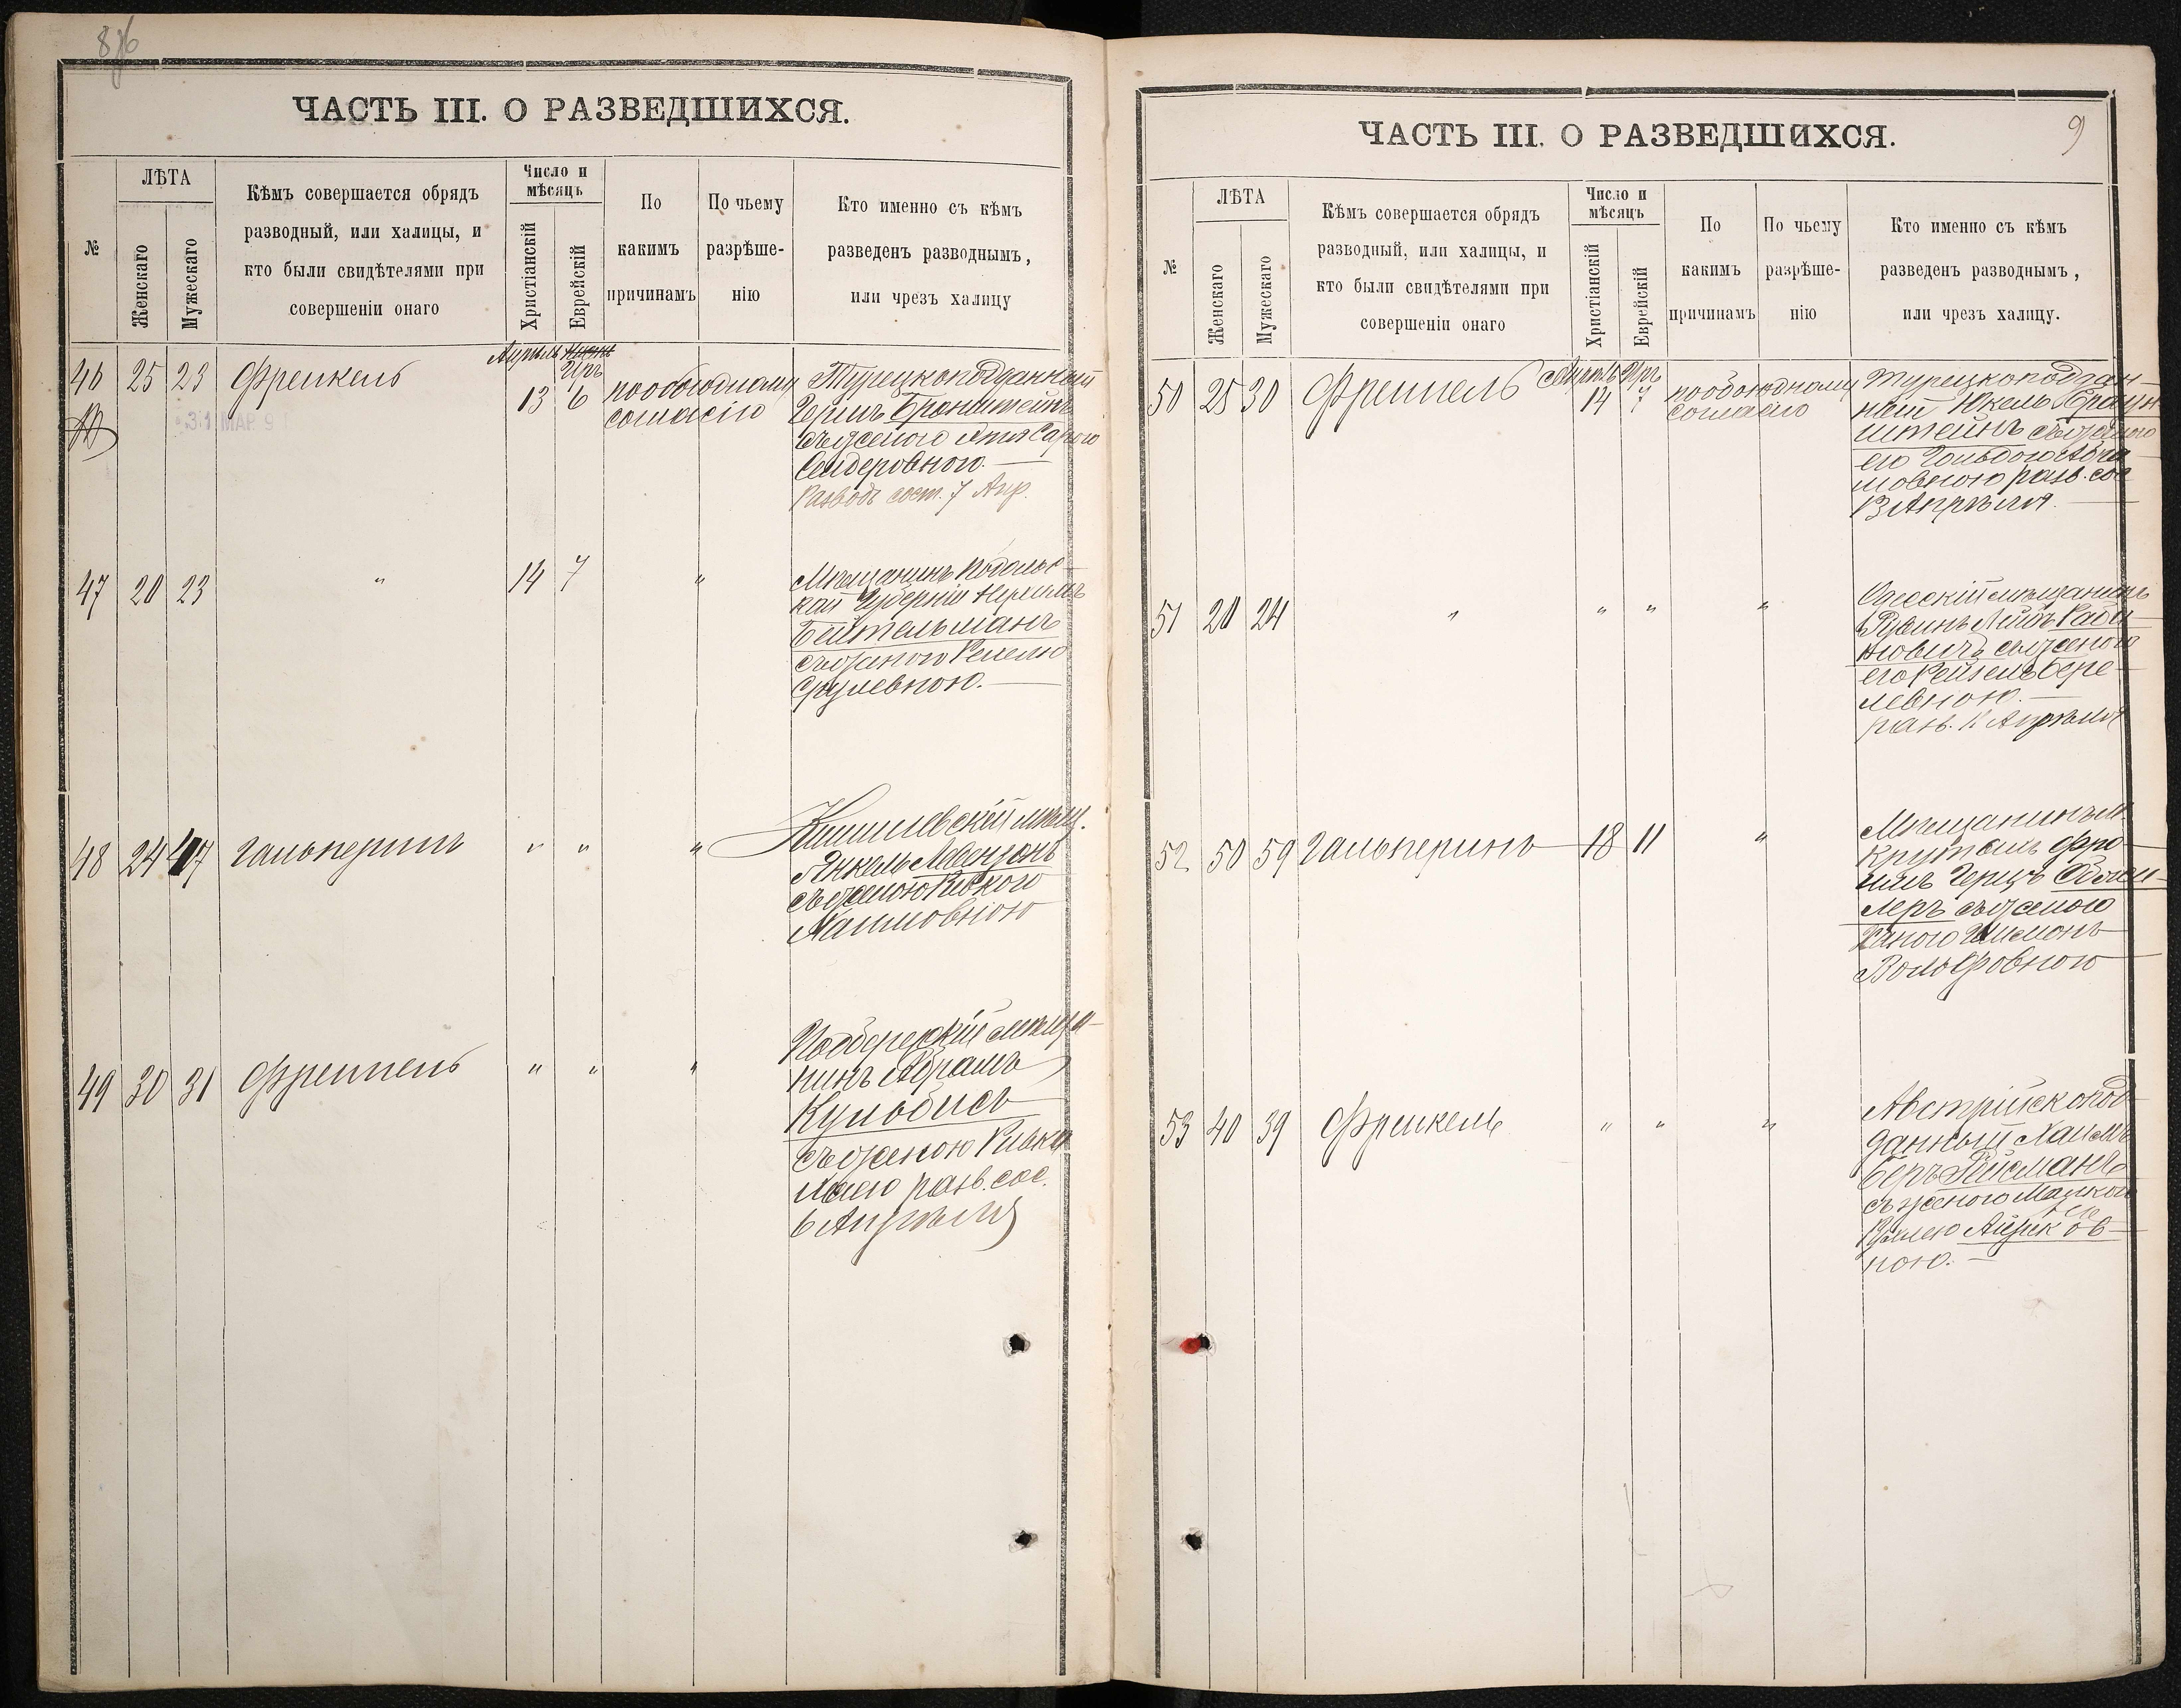 8
ЧАСТЬ III. О РАЗВЕДШИХСЯ.
№
ЛѢТА
Женскаго
Мужескаго
Кѣмъ совершается обрядъ
разводный, или халицы, и
кто были свидѣтелями при
совершеніи онаго
Число и
мѣсяцъ
Христіанскій
Еврейскій
По
какимъ
причинамъ
По чьему
разрѣше-
нію
Кто именно съ кѣмъ
разведенъ разводнымъ,
или чрезъ халицу
46 25 23 Френкель
Апрѣль Иръ
13 6
пообоюдному
согласію
Турецкоподданный
Гершъ Бронштейнъ
съ женою Сарою
Сендеровною.
Разводъ сост. 7 Апр.
31 МАР 9
47 20 23 " 14 7 "
Мѣщанинъ Подольс-
кой Губерніи
Бейтельманъ
съ женою
Срулевною.
48 24 47 Гальперинъ " " "
Кишиневскій мѣщ.
Янкель Левензонъ
съ женою Ривкою
Хаимовною
49 30 31 Френкель " " "
мѣща-
нинъ Абрамъ
Кульбисъ
съ женою Ривка
разв. сос.
6 Апрѣля
9
ЧАСТЬ III. О РАЗВЕДШИХСЯ.
№
ЛѢТА
Женскаго
Мужескаго
Кѣмъ совершается обрядъ
разводный, или халицы, и
кто были свидѣтелями при
совершеніи онаго
Число и
мѣсяцъ
Христіанскій
Еврейскій
По
какимъ
причинамъ
По чьему
разрѣше-
нію
Кто именно съ кѣмъ
разведенъ разводнымъ,
или чрезъ халицу.
50 25 30 Френкель
Апрѣль Иръ
14 7
пообоюдному
согласію
Турецкоподдан-
ный Юкель Браун-
штейнъ съ женою
его Гольдою Абра-
мовною разв. сос
13 Апрѣля.
51 20 24 " " " "
Одесскій мѣщанинъ
Лейбъ Раби-
новичъ съ женою
его Рейзель Бере-
левною.
разв. Апрѣля
52 50 59 Гальперинъ 18 11 "
Мѣщанинъ м.
Фро-
имъ Герцъ
леръ съ женою
Ханою
Вольфовною
53 40 39 Френкель " " "
Австрійскопод-
данный Хаимъ
Беръ Рейсманъ
съ женою
Айзиков-
ною.